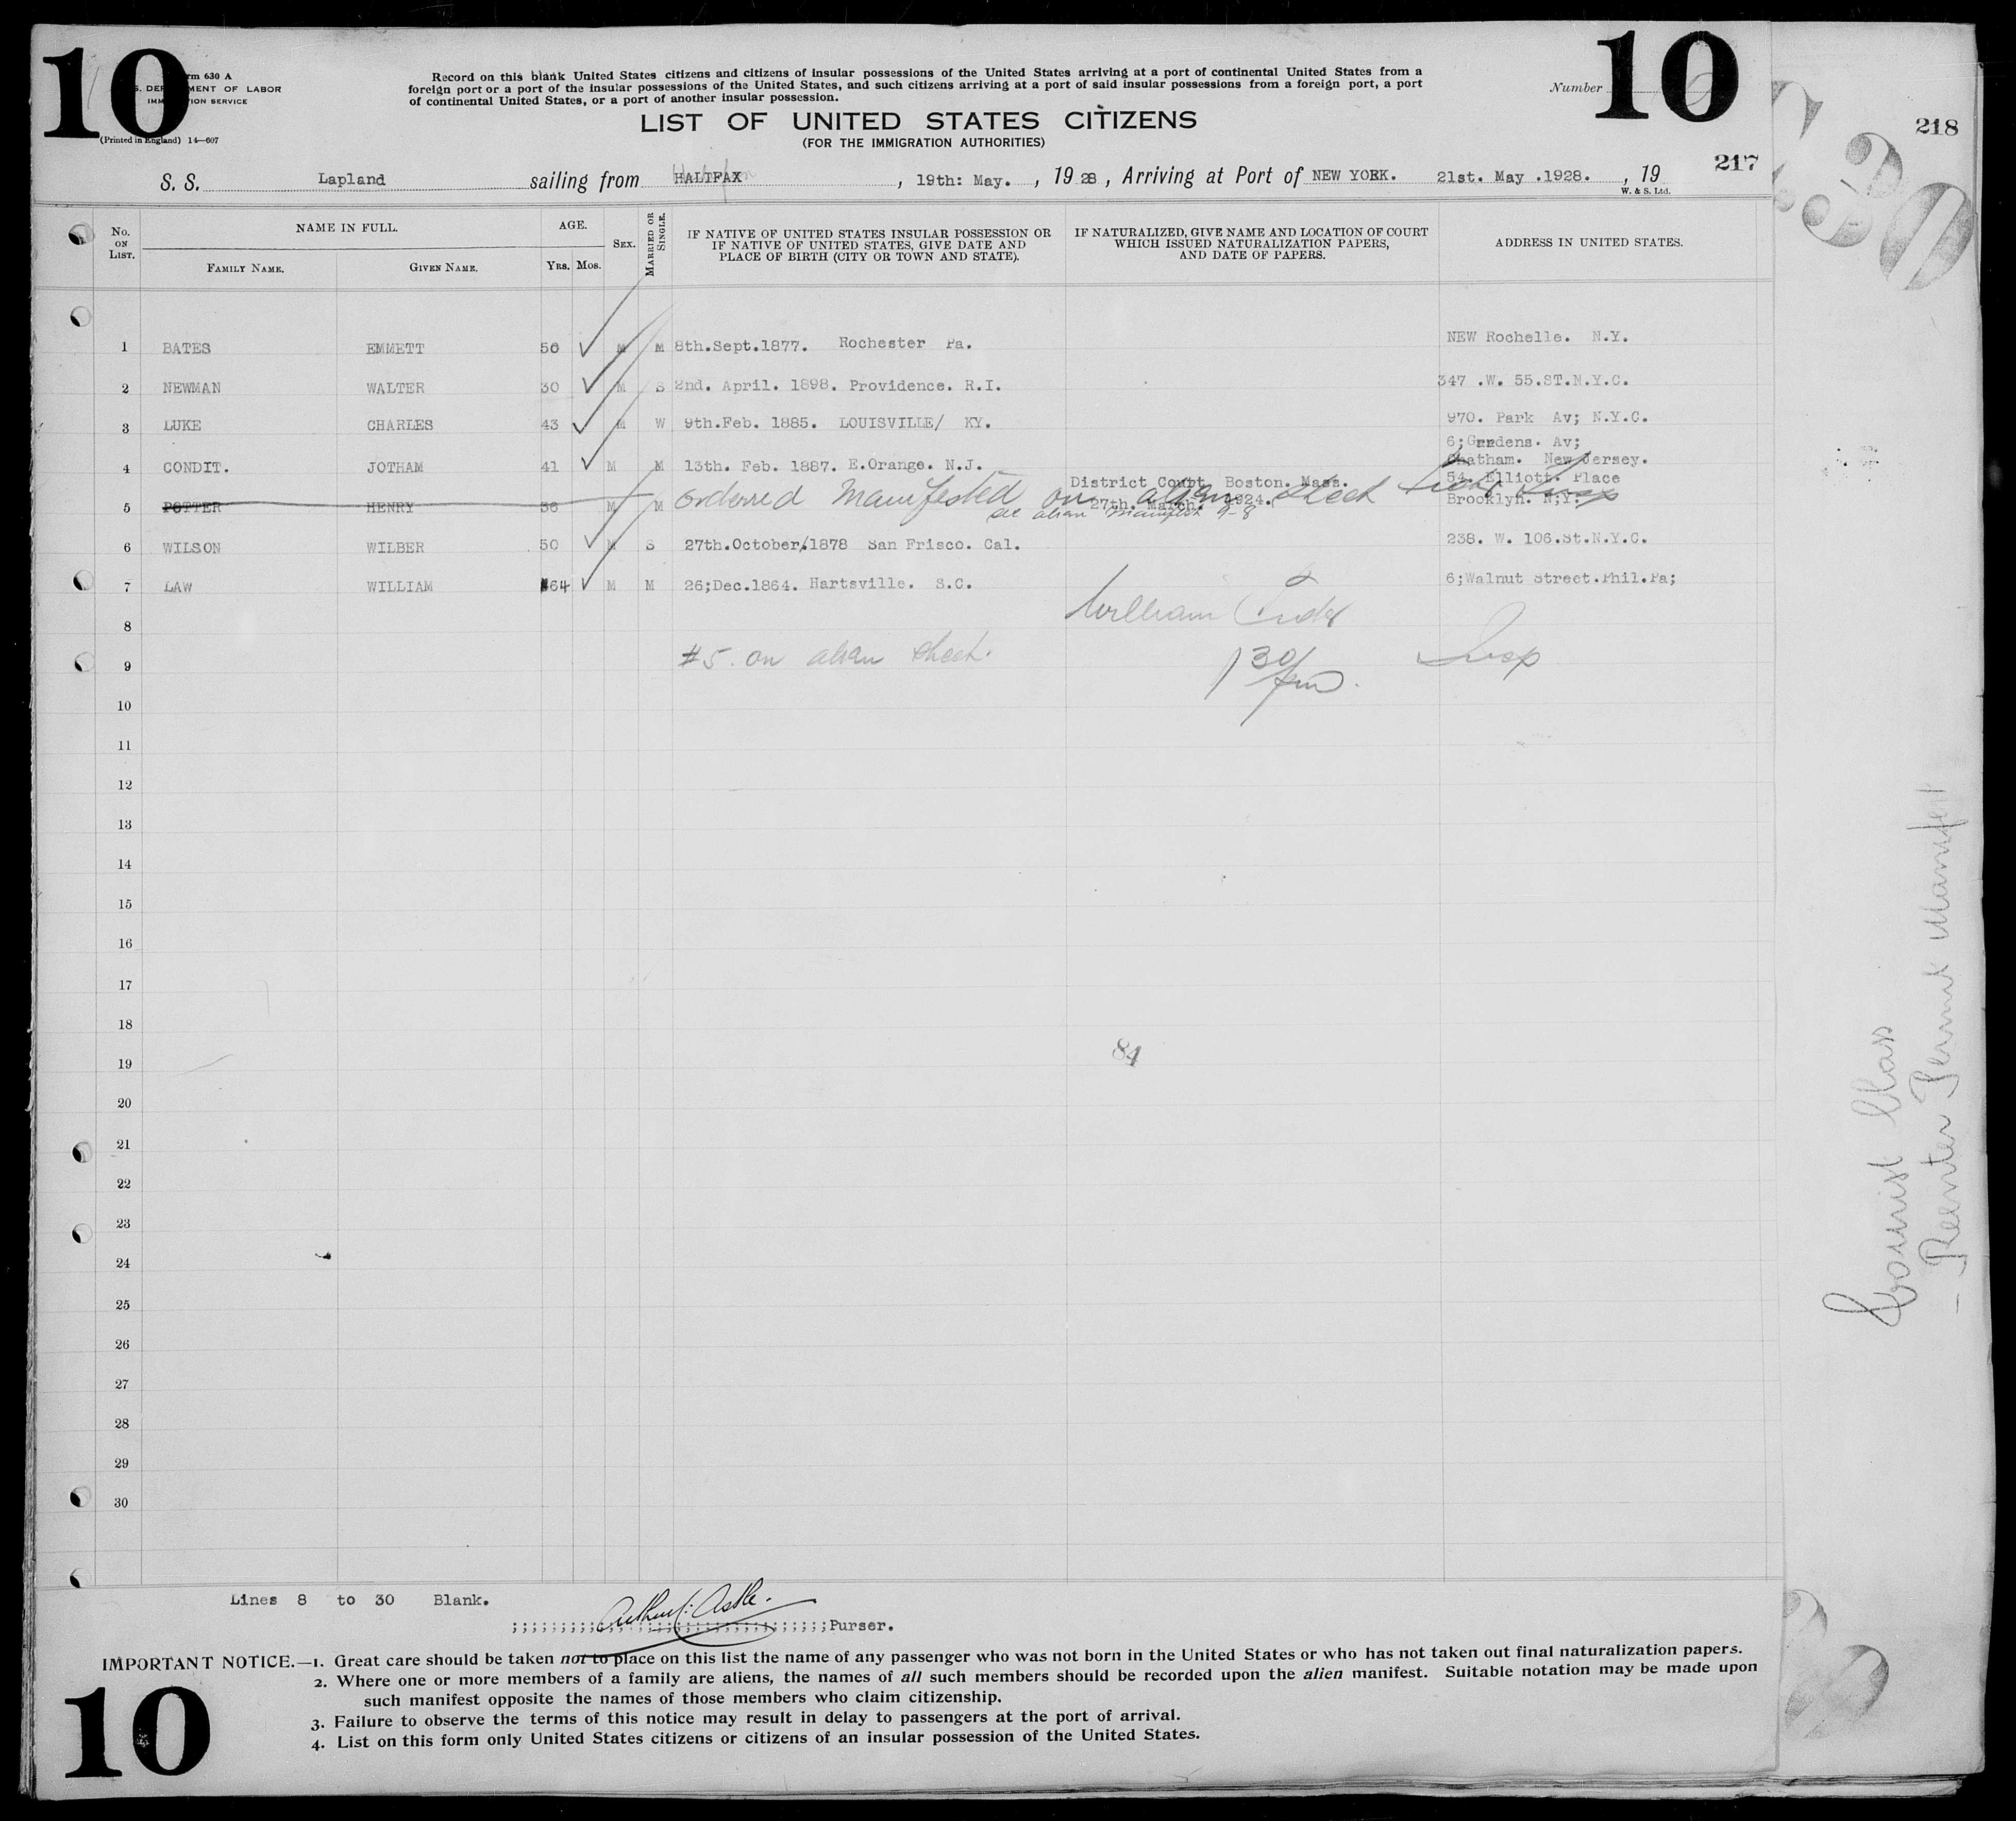 10
10
rm 630 A
S. DEPARTMENT OF LABOR
IMMIGRATION SERVICE
(Printed in England) 14—607
Record on this blank United States citizens and citizens of insular possessions of the United States arriving at a port of continental United States from a
foreign port or a port of the insular possessions of the United States, and such citizens arriving at a port of said insular possessions from a foreign port, a port
of continental United States, or a port of another insular possession.
Number
LIST OF UNITED STATES CITIZENS
(FOR THE IMMIGRATION AUTHORITIES)
218
217
S. S. Lapland sailing from HALIFAX , 19th: May. , 19 28 , Arriving at Port of NEW YORK. 21st. May .1928. , 19
W. & S. Ltd.
No. ON LIST. NAME IN FULL. FAMILY NAME. GIVEN NAME. AGE. YRS. MOS. SEX. MARRIED OR SINGLE.
IF NATIVE OF UNITED STATES INSULAR POSSESSION OR
IF NATIVE OF UNITED STATES, GIVE DATE AND
PLACE OF BIRTH (CITY OR TOWN AND STATE).
IF NATURALIZED, GIVE NAME AND LOCATION OF COURT
WHICH ISSUED NATURALIZATION PAPERS,
AND DATE OF PAPERS.
ADDRESS IN UNITED STATES.
1 BATES EMMETT 50 M M 8th.Sept.1877. Rochester Pa. NEW Rochelle. N.Y.
2 NEWMAN WALTER 30 M S 2nd. April. 1898. Providence. R.I. 347 .W. 55.ST.N.Y.C.
3 LUKE CHARLES 43 M W 9th.Feb. 1885. LOUISVILLE/ KY. 970. Park Av; N.Y.C.
4 CONDIT. JOTHAM 41 M M 13th. Feb. 1887. E.Orange. N.J. 6; Av;
Chatham. New Jersey.
5 POTTER HENRY 36 M M Ordered Manifested on alien sheet
District Court Boston. Mass.
27th. March. 1924.
54. Elliott. Place
Brooklyn. N;Y.
see alien manifest 9-8
6 WILSON WILBER 50 M S 27th.October/1878 San Frisco. Cal. 238. W. 106.St.N.Y.C.
7 LAW WILLIAM 64 M M 26;Dec.1864. Hartsville. S.C. 6;Walnut Street.Phil.Pa;
8 William
9 #5. on alien sheet. 130 Insp
10
11
12
13
14
15
16
17
18
84
19
20
21
22
23
24
25
26
27
28
29
30
Tourist Class
- Reenter Permit Manifest
Lines 8 to 30 Blank.
Arthur Astle.
;;;;;;;;;;;;;;;;;;;;;;;;;;;;;;;;;;;;Purser.
IMPORTANT NOTICE.—1. Great care should be taken not to place on this list the name of any passenger who was not born in the United States or who has not taken out final naturalization papers.
2. Where one or more members of a family are aliens, the names of all such members should be recorded upon the alien manifest. Suitable notation may be made upon
such manifest opposite the names of those members who claim citizenship.
3. Failure to observe the terms of this notice may result in delay to passengers at the port of arrival.
4. List on this form only United States citizens or citizens of an insular possession of the United States.
10